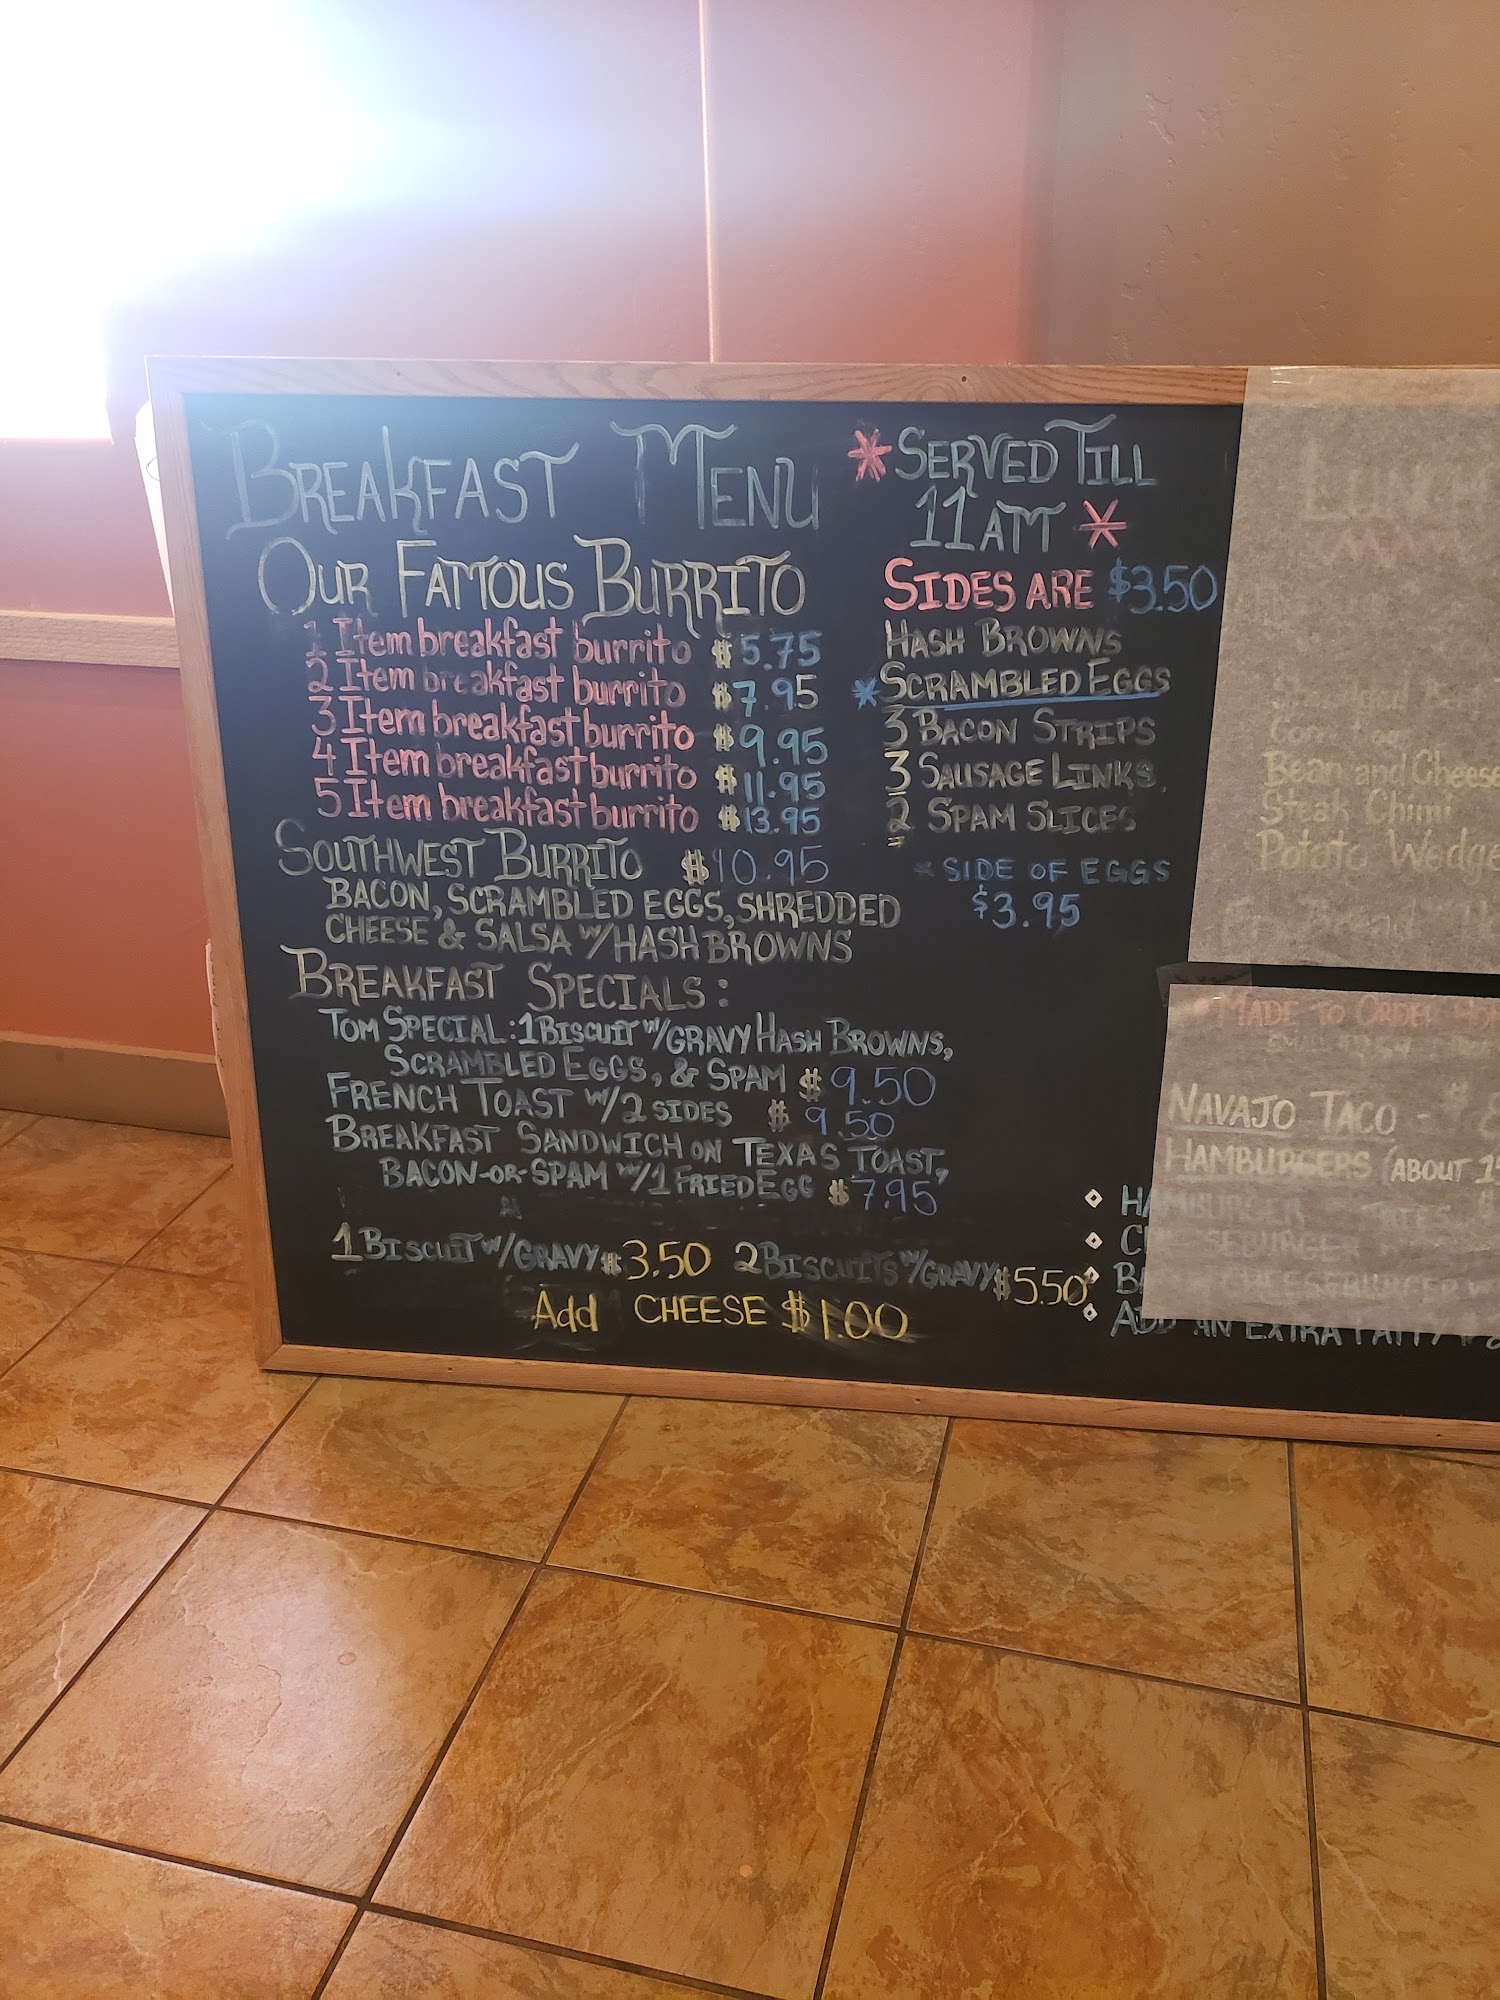 BREAKFAST MENU
OUR FAMOUS BURRITO
1 Item breakfast burrito $5.75
2 Item breakfast burrito $7.95
3 Item breakfast burrito $9.95
4 Item breakfast burrito $11.95
5 Item breakfast burrito $13.95
SOUTHWEST BURRITO $10.95
BACON, SCRAMBLED EGGS, SHREDDED
CHEESE & SALSA W/HASH BROWNS
BREAKFAST SPECIALS:
TOM SPECIAL: 1 BISCUIT W/GRAVY HASH BROWNS,
SCRAMBLED EGGS, & SPAM $9.50
FRENCH TOAST W/2 SIDES $9.50
BREAKFAST SANDWICH ON TEXAS TOAST,
BACON-OR-SPAM W/1 FRIED EGG $7.95
1 BISCUIT W/GRAVY $3.50 2 BISCUITS W/GRAVY $5.50
Add CHEESE $1.00
*SERVED TILL
11 AM *
SIDES ARE $3.50
HASH BROWNS
*SCRAMBLED EGGS
3 BACON STRIPS
3 SAUSAGE LINKS
2 SPAM SLICES
* SIDE OF EGGS
$3.95
LUNCH
Bean and Cheese
Steak Chimi
Potato Wedge
MADE TO ORDER
NAVAJO TACO - $
HAMBURGERS (ABOUT
HAMBURGER
CHEESEBURGER
ADD AN EXTRA PATTY